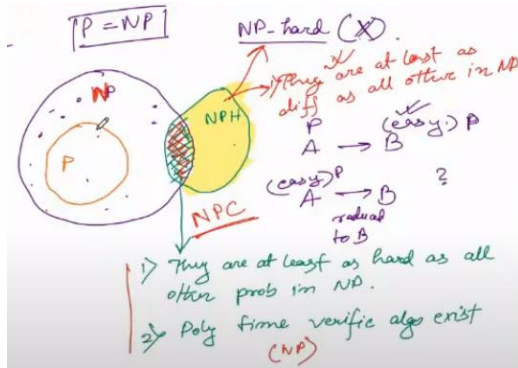 P = NP
NP-hard (X).
1) They are at least as
diff as all other in NP
NP
NPH
P
P (easy.) P
A → B
(easy) P
A → B ?
reduced
to B
NPC
1) They are at least as hard as all
other prob in NP.
2) Poly time verific algo exist
(NP)